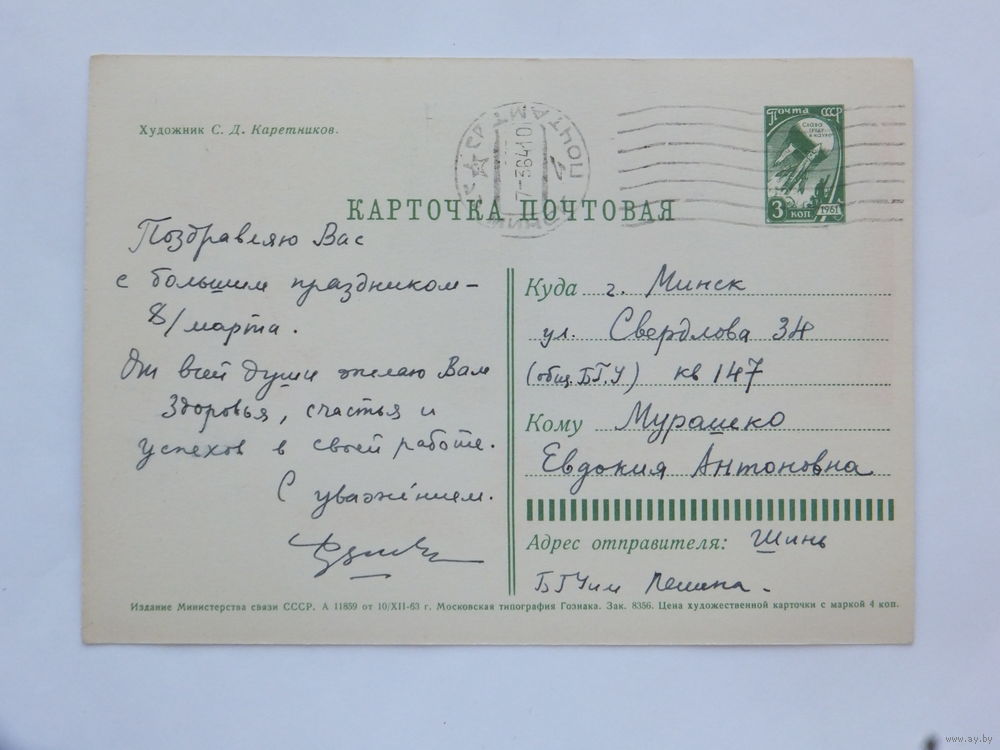 Художник С. Д. Каретников.
ПОЧТАМТ
7-3 64 10
МИНСК
Почта СССР
СЛАВА
ТРУДУ
И НАУКЕ
3 КОП 1961
КАРТОЧКА ПОЧТОВАЯ
Поздравляю Вас
с большим праздником –
8/марта.
От всей души желаю Вам
здоровья, счастья и
успехов в своей работе.
С уважением.
Куда г. Минск
ул. Свердлова 34
(общ. БГУ) кв 147
Кому Мурашко
Евдокия Антоновна
Адрес отправителя: Шинь
БГУ им Ленина.
Издание Министерства связи СССР. А 11859 от 10/XII-63 г. Московская типография Гознака. Зак. 8356. Цена художественной карточки с маркой 4 коп.
www.ay.by